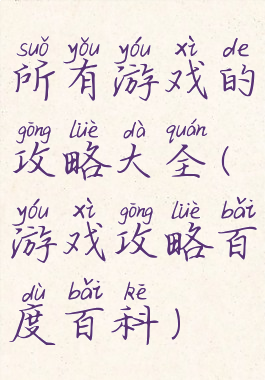 suǒ yǒu yóu xì de
所有游戏的
gōng lüè dà quán
攻略大全(
yóu xì gōng lüè bǎi
游戏攻略百
dù bǎi kē
度百科)